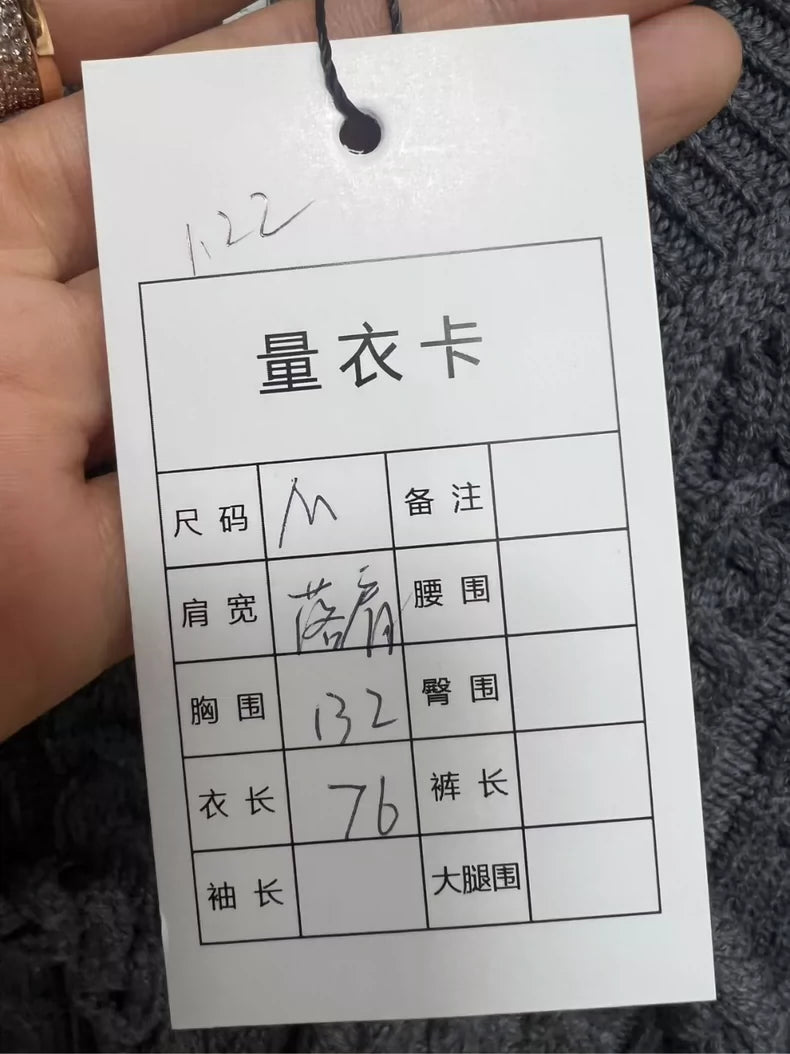 1.22
量衣卡
尺码 M 备注
肩宽 落肩 腰围
胸围 132 臀围
衣长 76 裤长
袖长 大腿围